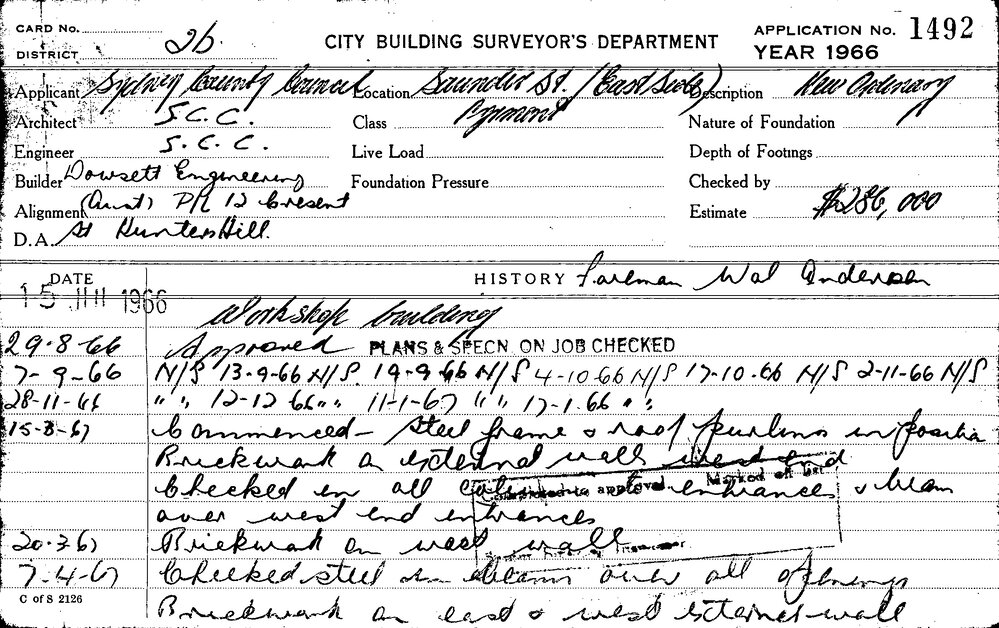 CARD No.
DISTRICT 2b.
CITY BUILDING SURVEYOR'S DEPARTMENT
APPLICATION No. 1492
YEAR 1966
Applicant Sydney County Council Location Saunders St. (East Side) Description New Ordinary
Architect S.C.C. Class Pyrmont Nature of Foundation
Engineer S.C.C. Live Load Depth of Footings
Builder Dowsett Engineering Foundation Pressure Checked by
Alignment (Aust) P/L 12 Cresent Estimate $286,000
D.A. St Hunters Hill.
DATE HISTORY Foreman Wal Anderson
15 JUL 1966
Workshop building
29.8.66 Approved PLANS & SPECN. ON JOB CHECKED
7-9-66 N/S 13-9-66 N/S. 19-9.66 N/S 4-10.66 N/S 17-10.66 N/S 2-11-66 N/S
28-11-66 " " 12-12 66 " " 11-1-67 " " 17-1.66 " "
15-3-67 Commenced - steel frame & roof purlins in position
Brickwork on external wall west end
Checked in all entrances & beam
to approved Marked off list
over west end entrances
20.3.67 Brickwork on west wall
7-4-67 Checked steel in beams over all openings
C of S 2126
Brickwork on east & west external wall